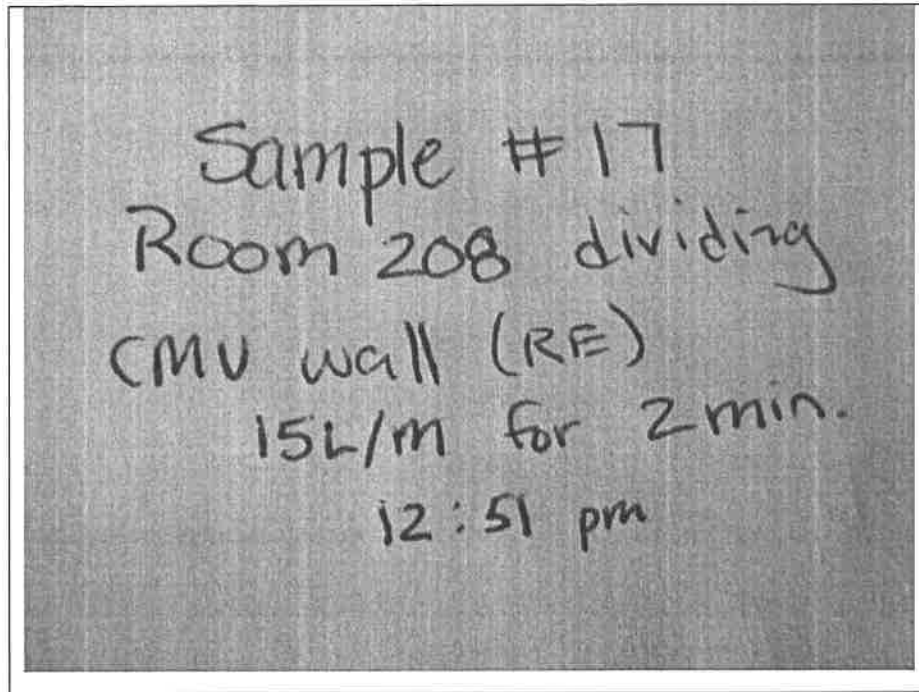 Sample #17
Room 208 dividing
CMU wall (RE)
15L/m for 2min.
12:51 pm